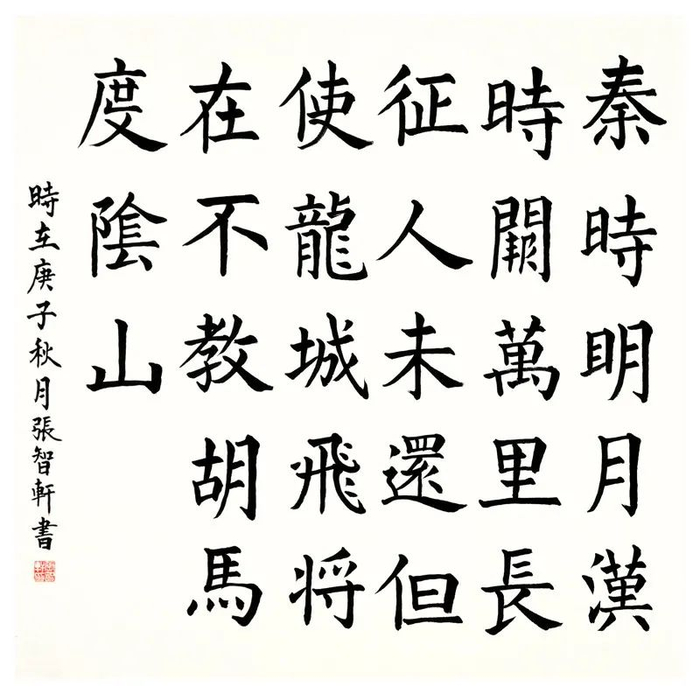 秦時明月漢
時關萬里長
征人未還但
使龍城飛将
在不教胡馬
度陰山
時在庚子秋月張智軒書